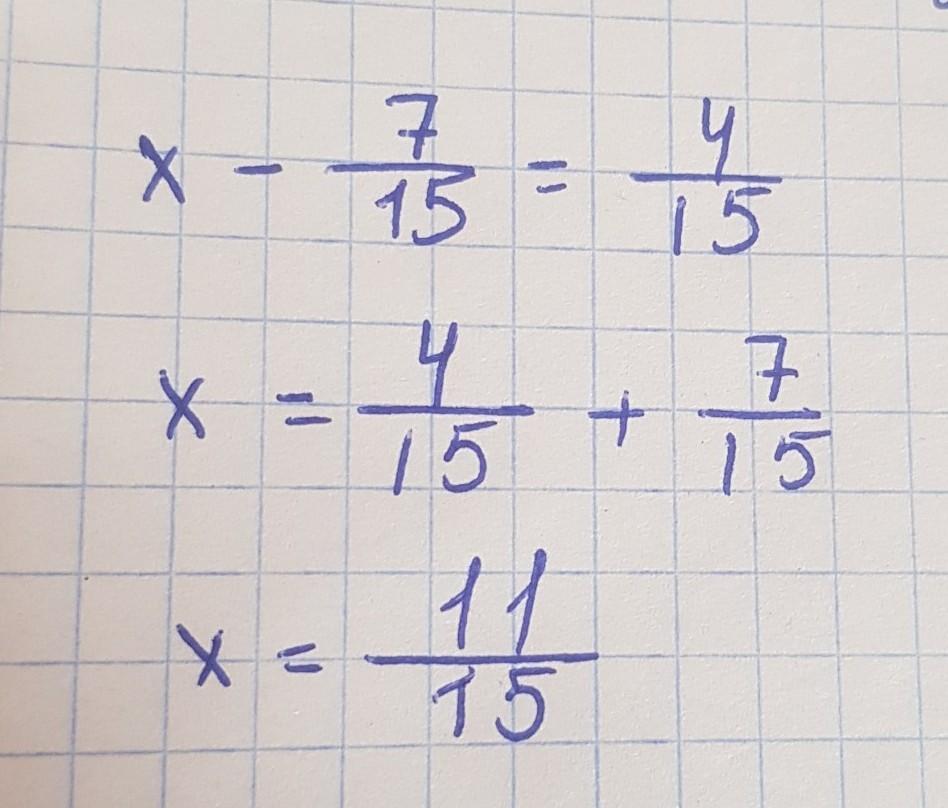 x - 7/15 = 4/15
x = 4/15 + 7/15
x = 11/15